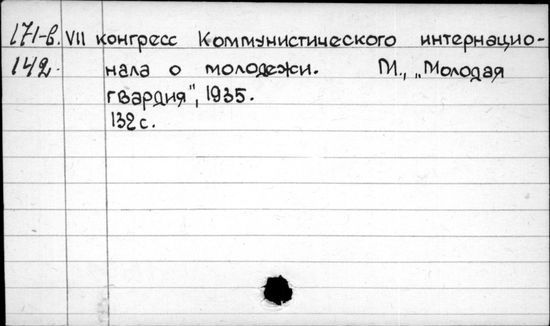 171-в. VII конгресс Коммунистического интернацио-
142. нала о молодежи. М., „Молодая
гвардия", 1935.
132 с.